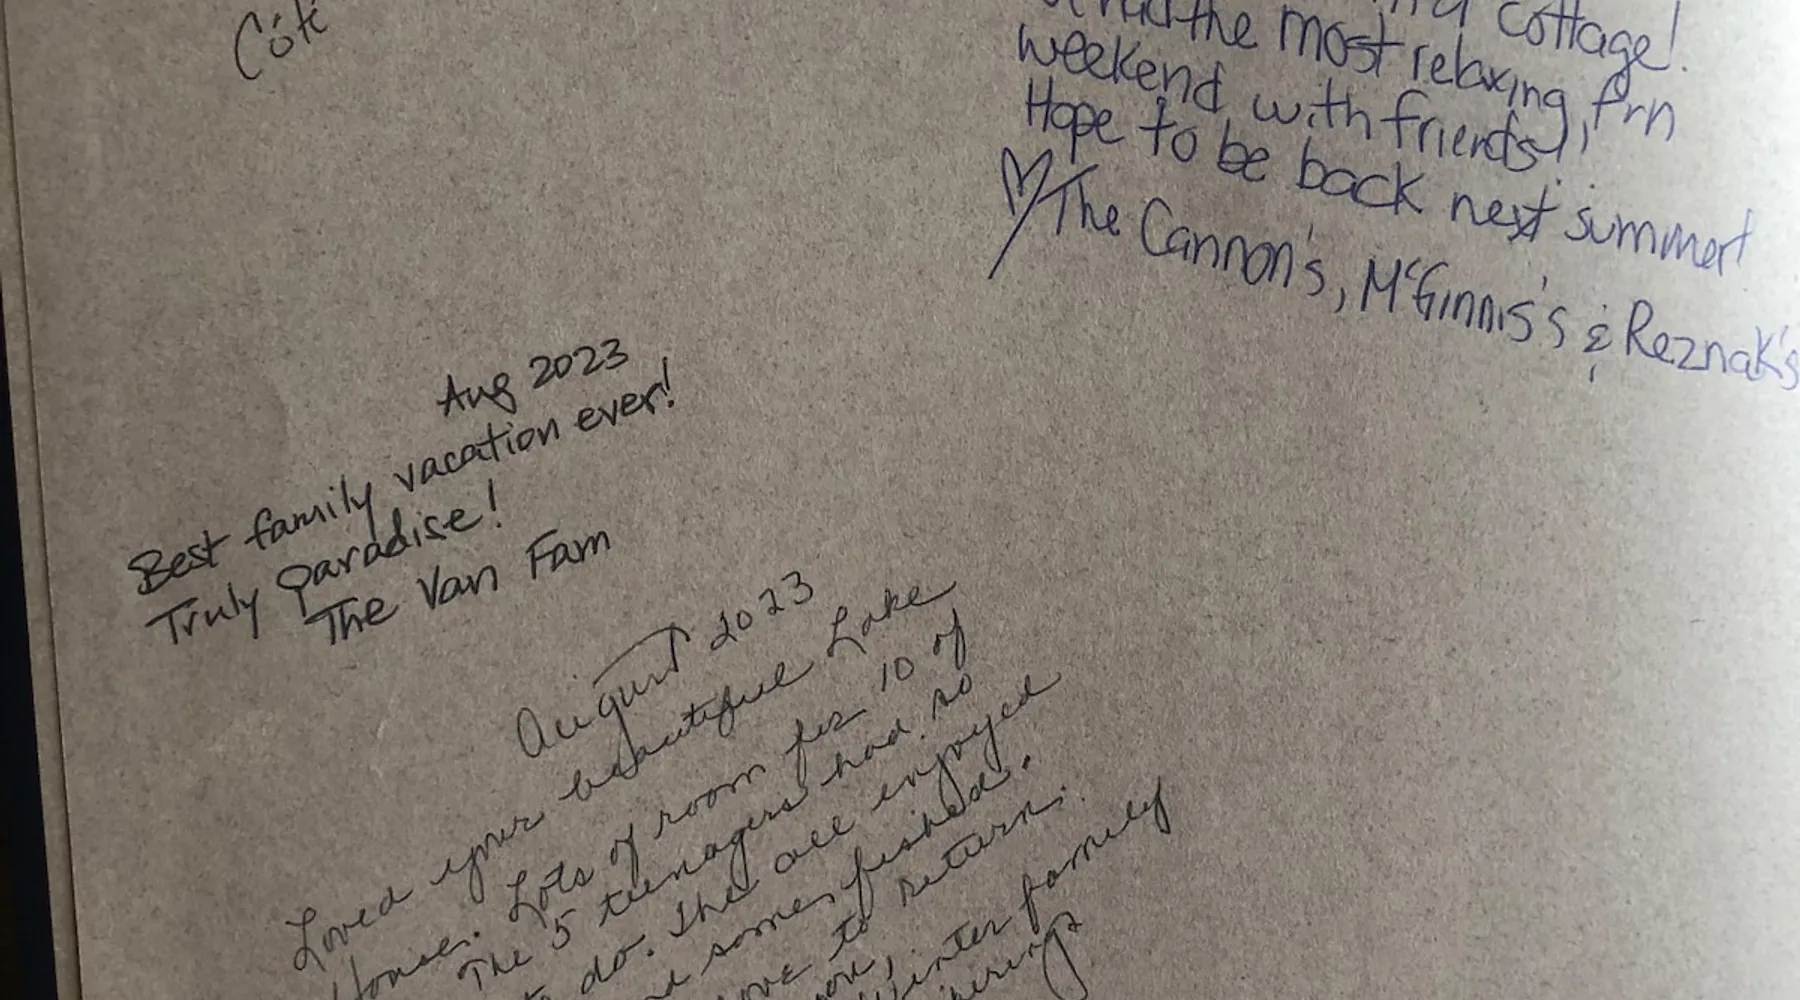 Côté
cottage!
the most relaxing, fun
weekend with friends!
Hope to be back next summer!
The Cannon's, McGinnis's & Reznak's
Aug 2023
Best family vacation ever!
Truly paradise!
The Van Fam
August 2023
Loved your beautiful Lake
House. Lots of room for 10 of
The 5 teenagers had so
to do. The all enjoyed
some fished.
to return.
Winter family